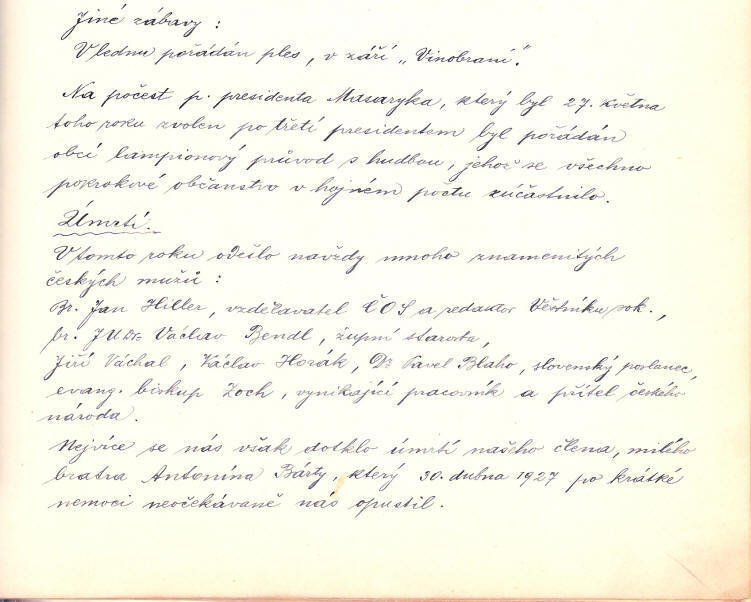 Jiné zábavy :
V lednu pořádán ples, v září „Vinobraní".
Na počest p. presidenta Masaryka, který byl 27. května
toho roku zvolen po třetí presidentem byl pořádán
obcí lampionový průvod s hudbou, jehož se všechno
pokrokové občanstvo v hojném počtu zúčastnilo.
Úmrtí.
V tomto roku odešlo navždy mnoho znamenitých
českých mužů :
Br. Jan Hiller, vzdělavatel ČOS a redaktor Věstníku sok.,
br. JUDr. Václav Bendl, župní starosta,
Jiří Váchal, Václav Horák, Dr Pavel Blaho, slovenský poslanec,
evang. biskup Zoch, vynikající pracovník a přítel českého
národa.
Nejvíce se nás však dotklo úmrtí našeho člena, milého
bratra Antonína Bárty, který 30. dubna 1927 po krátké
nemoci neočekávaně nás opustil.